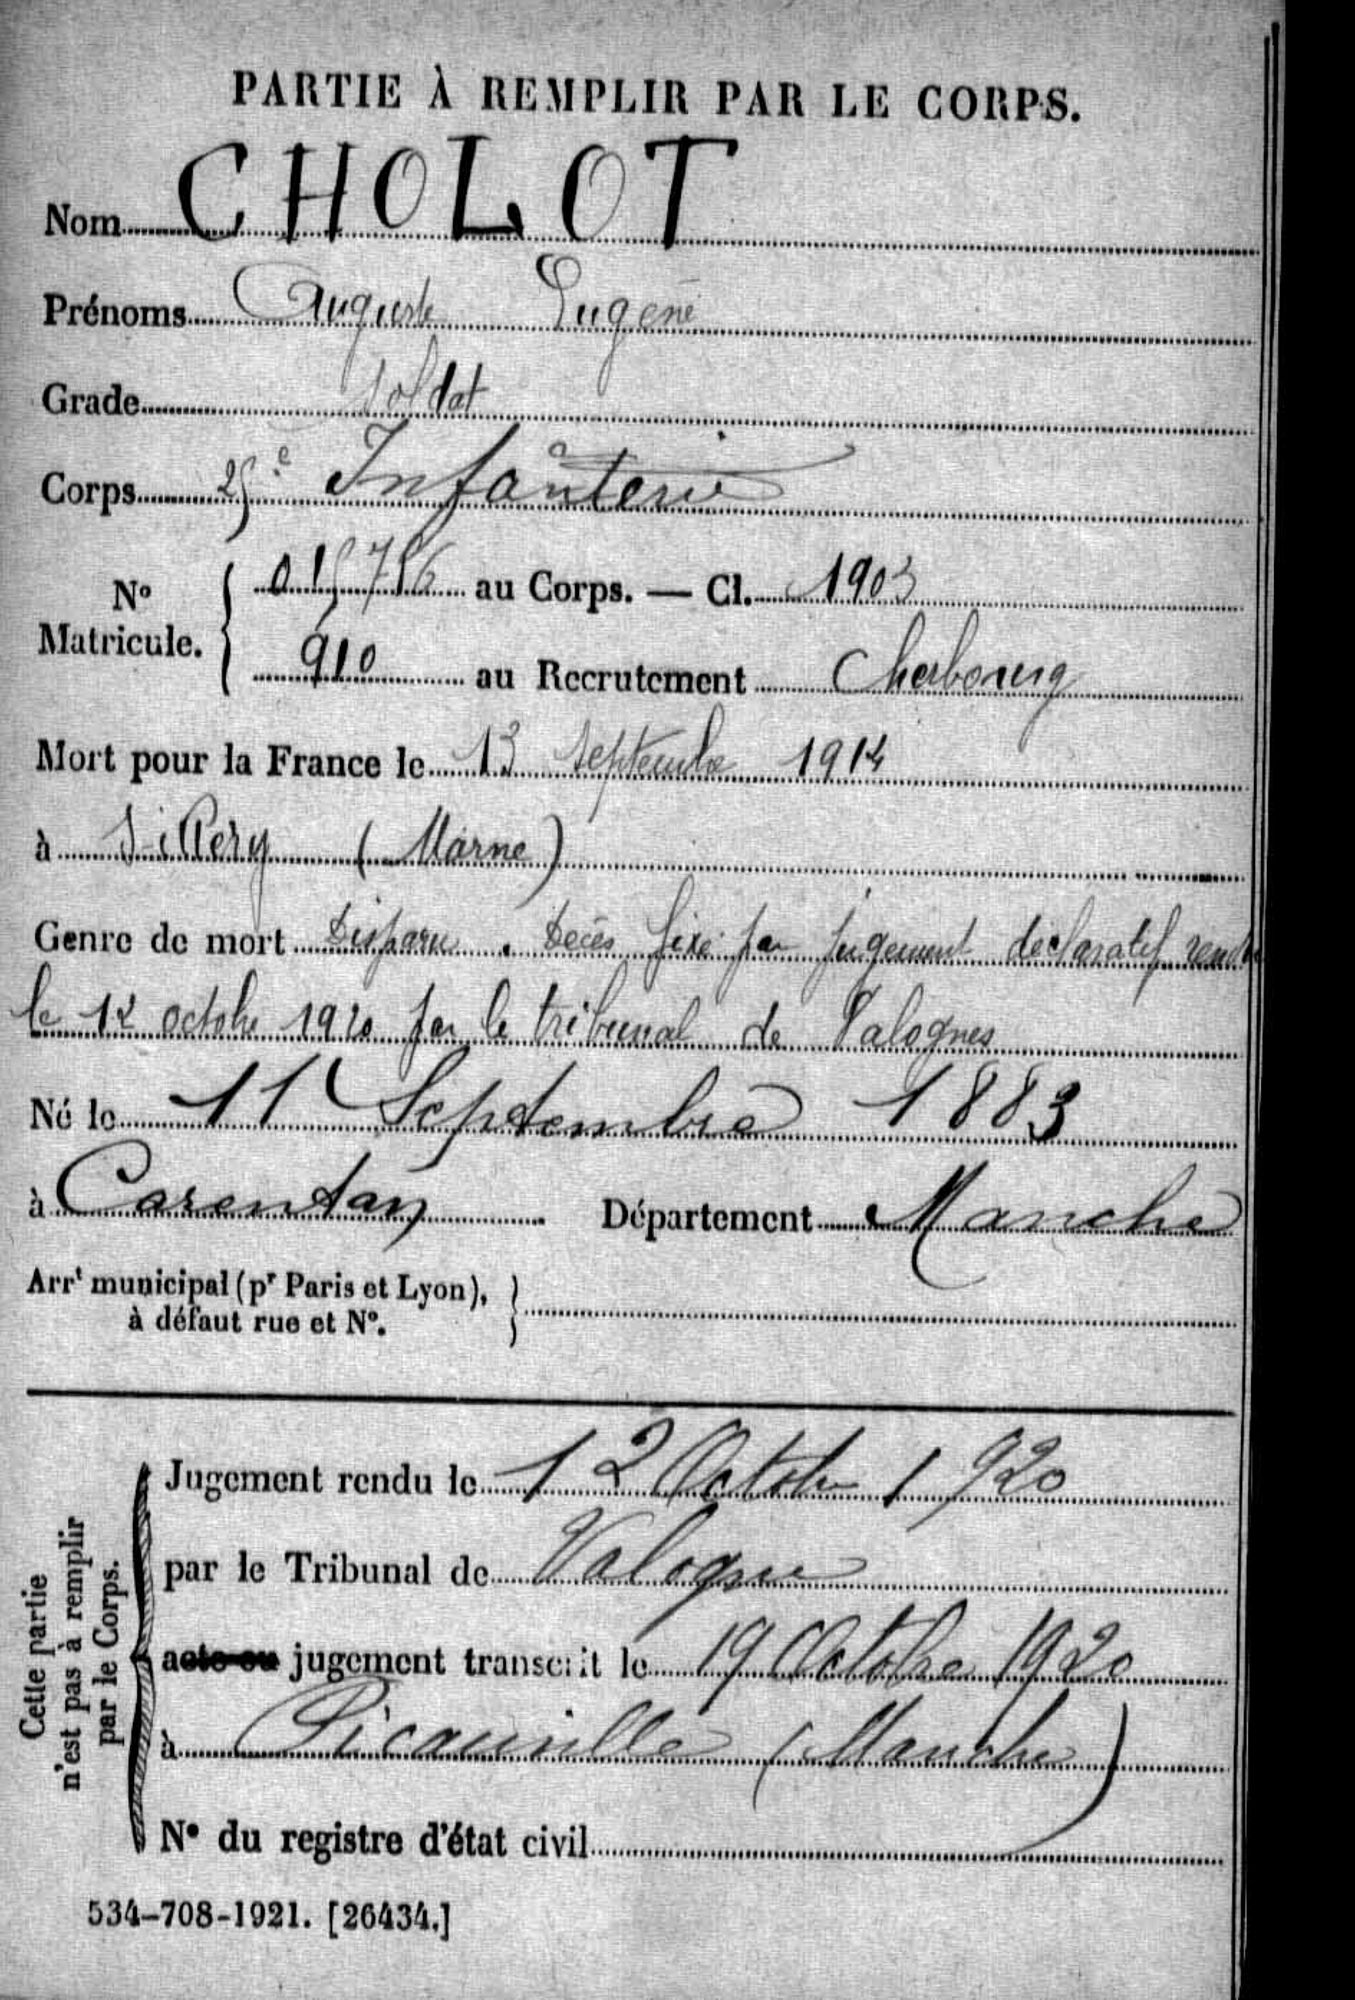 PARTIE À REMPLIR PAR LE CORPS.
Nom CHOLOT
Prénoms Auguste Eugène
Grade Soldat
Corps 25e Infanterie
No Matricule. 015756 au Corps. — Cl. 1903
910 au Recrutement Cherbourg
Mort pour la France le 13 septembre 1914
à Sillery (Marne)
Genre de mort Disparu. Décès fixé par jugement déclaratif rendu
le 12 octobre 1920 par le tribunal de Valognes
Né le 11 Septembre 1883
à Carentan Département Manche
Arrt municipal (pr Paris et Lyon),
à défaut rue et No.
Cette partie
n'est pas à remplir
par le Corps.
Jugement rendu le 12 Octobre 1920
par le Tribunal de Valognes
acte ou jugement transcrit le 19 Octobre 1920
à Picauville (Manche)
No du registre d'état civil
534-708-1921. [26434.]